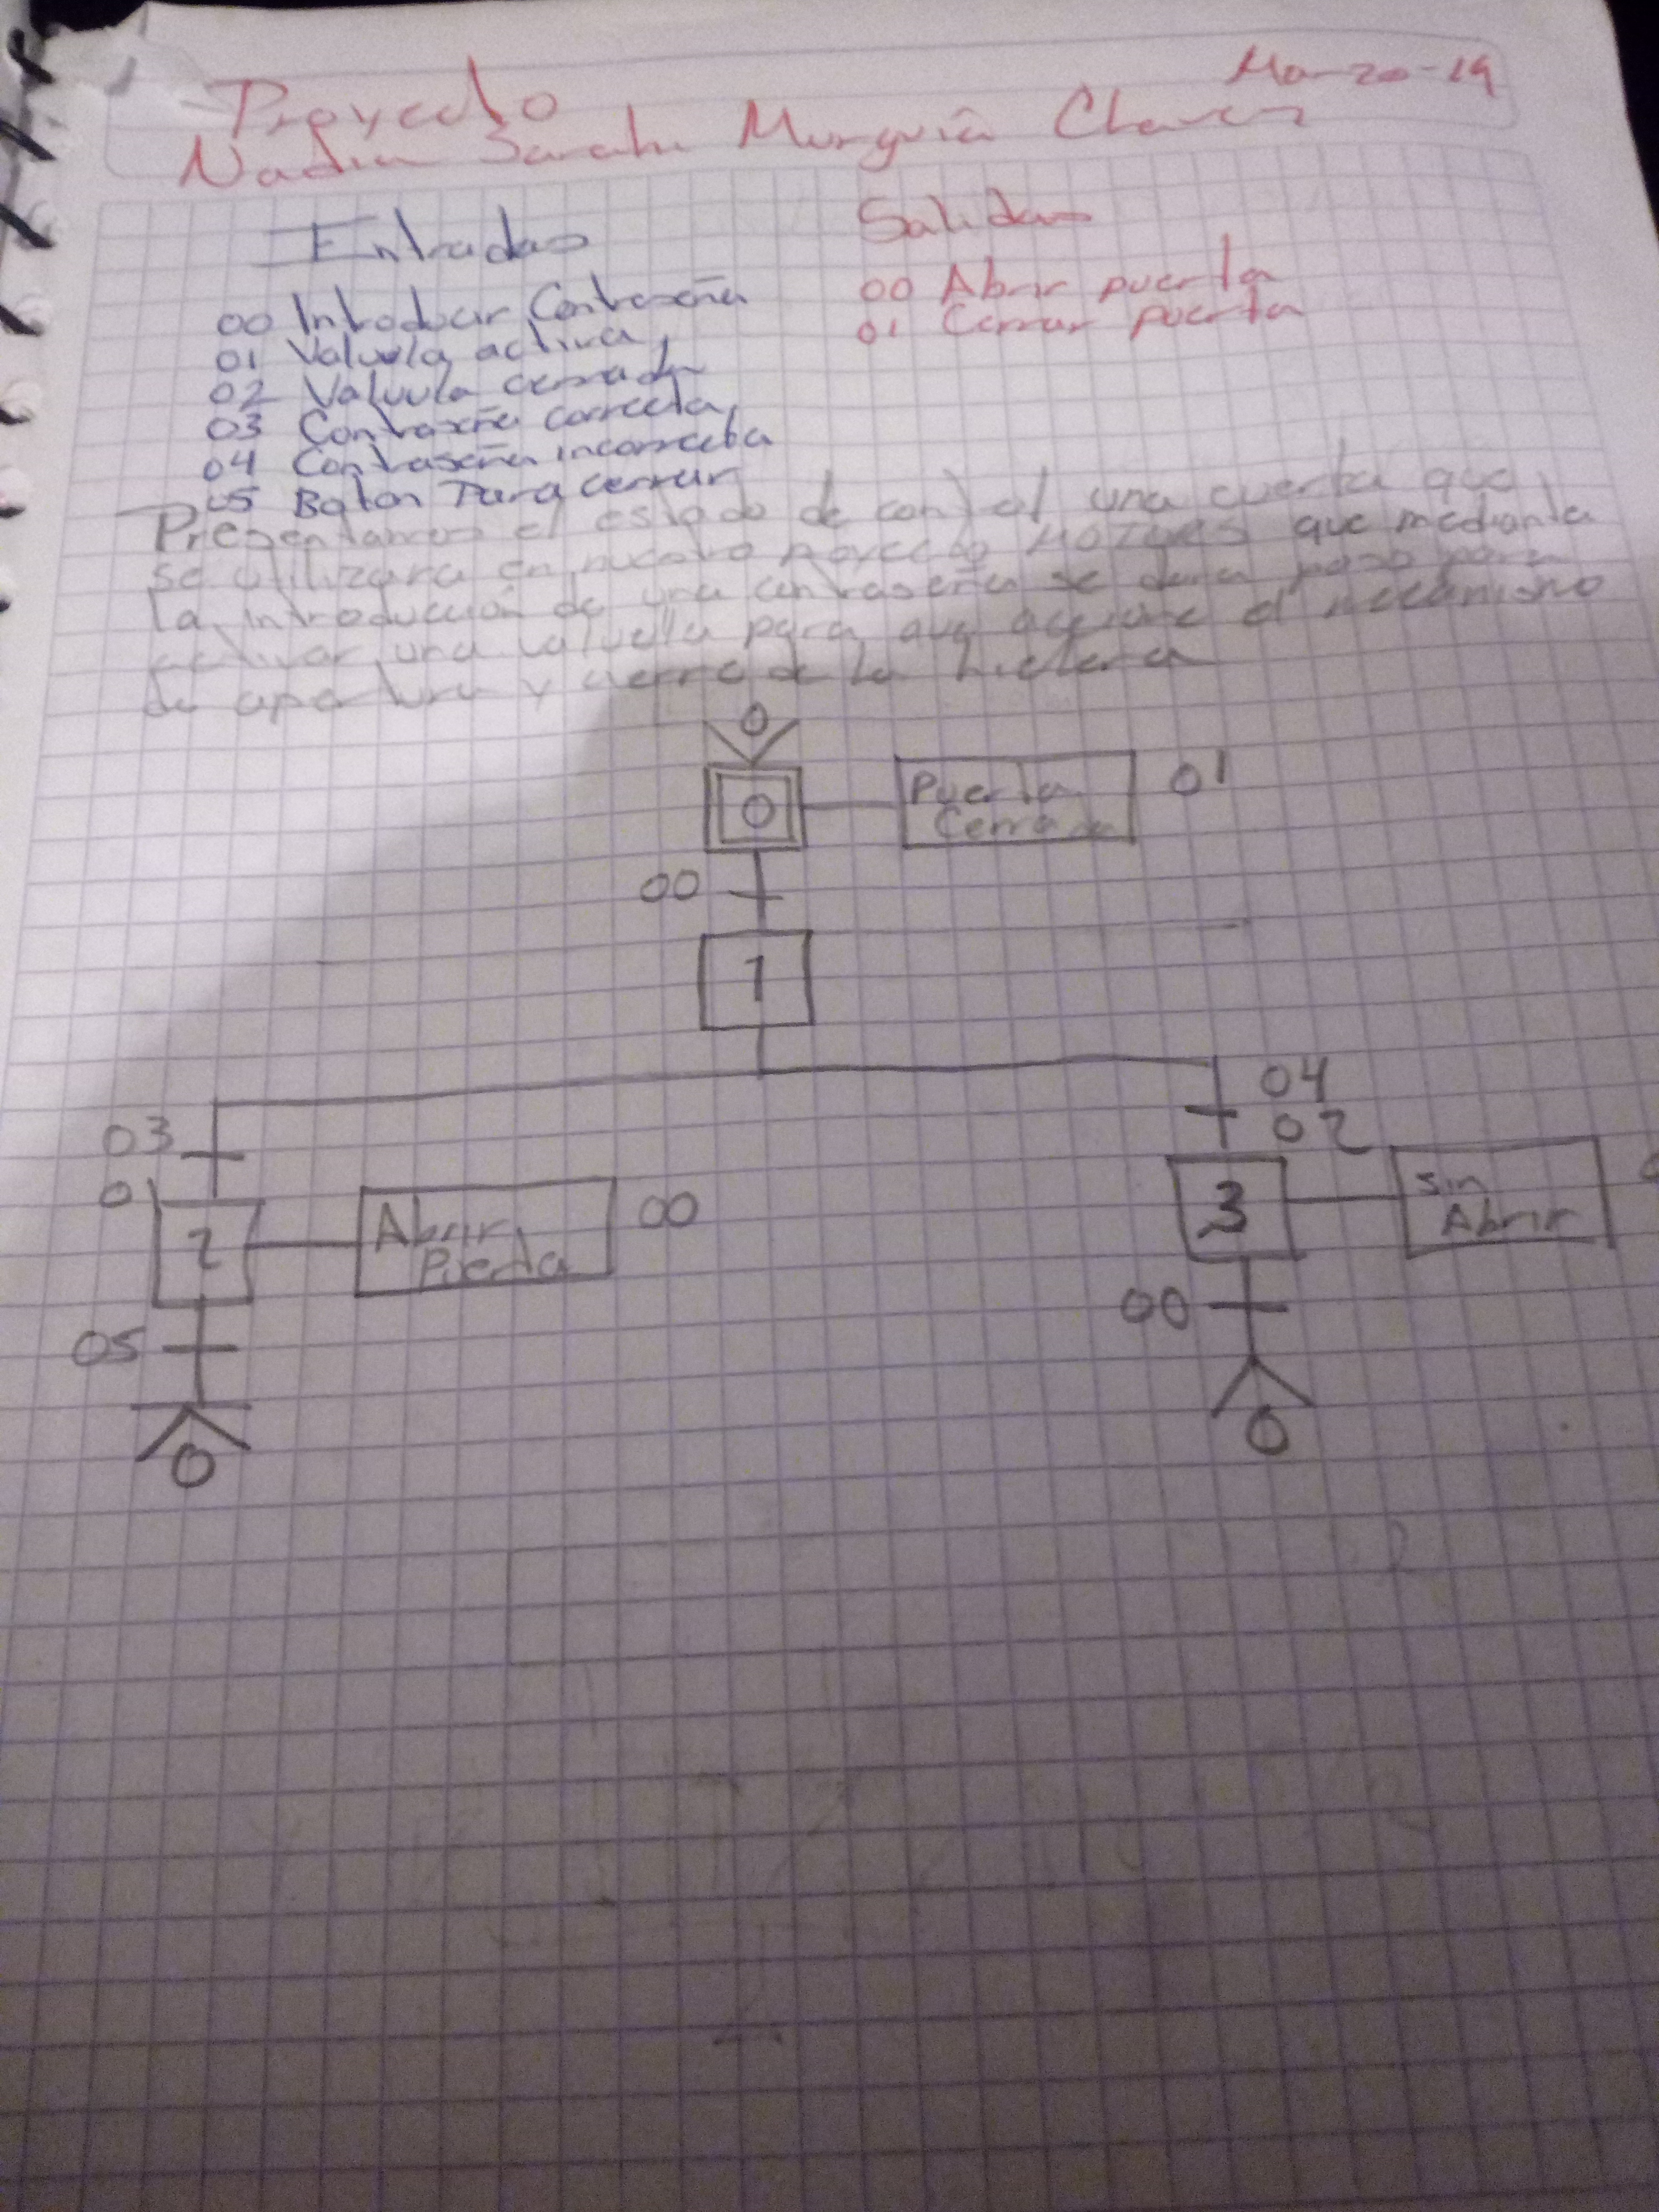 Marzo-19
Proyecto
Nadia Sarahi Murguía Chavez
Entradas
Salidas
00 Introducir Contraseña
01 Valvula activa
02 Valvula cerrada
03 Contraseña correcta
04 Contraseña incorrecta
05 Boton Para cerrar
00 Abrir puerta
01 Cerrar puerta
Presentamos el estado de control una que
se utilizara en nuestro proyecto que mediante
la introducción de una contraseña se dara paso para
activar una valvula para que accione el mecanismo
de apertura y cierre de la hielera
0
0
Puerta
Cerrada
01
00
1
03
04
02
0
2
Abrir
Puerta
00
3
Sin
Abrir
05
00
0
0